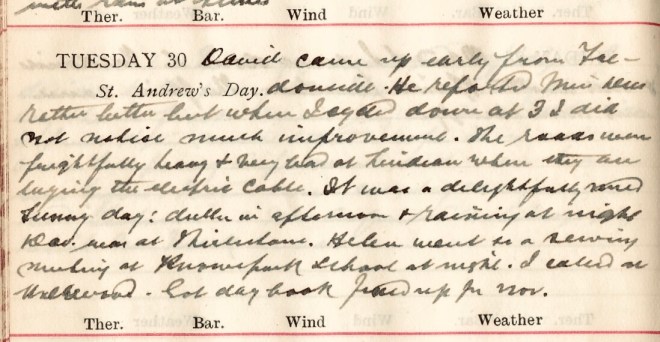 with rain at times
Ther. Bar. Wind Weather
TUESDAY 30 David came up early from
St. Andrew's Day. He reported
rather better but when I cycled down at 3 I did
not notice much improvement. The roads were
frightfully heavy & very bad at Lindean where they are
laying the electric cable. It was a delightfully
sunny day: duller in afternoon & raining at night
was at Thirlestane. Helen went to a sewing
meeting at Knowepark School at night. I called at
Got day book up for Nov.
Ther. Bar. Wind Weather